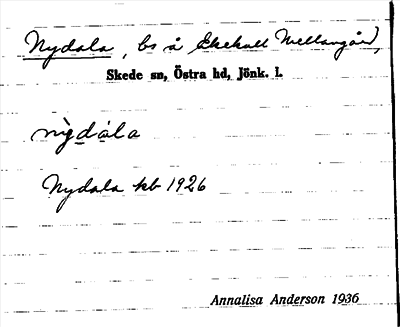 Nydala, bs å Ekekull Mellangård,
Skede sn, Östra hd, Jönk. l.
nỳdàla
Nydala kb 1926
Annalisa Anderson 1936